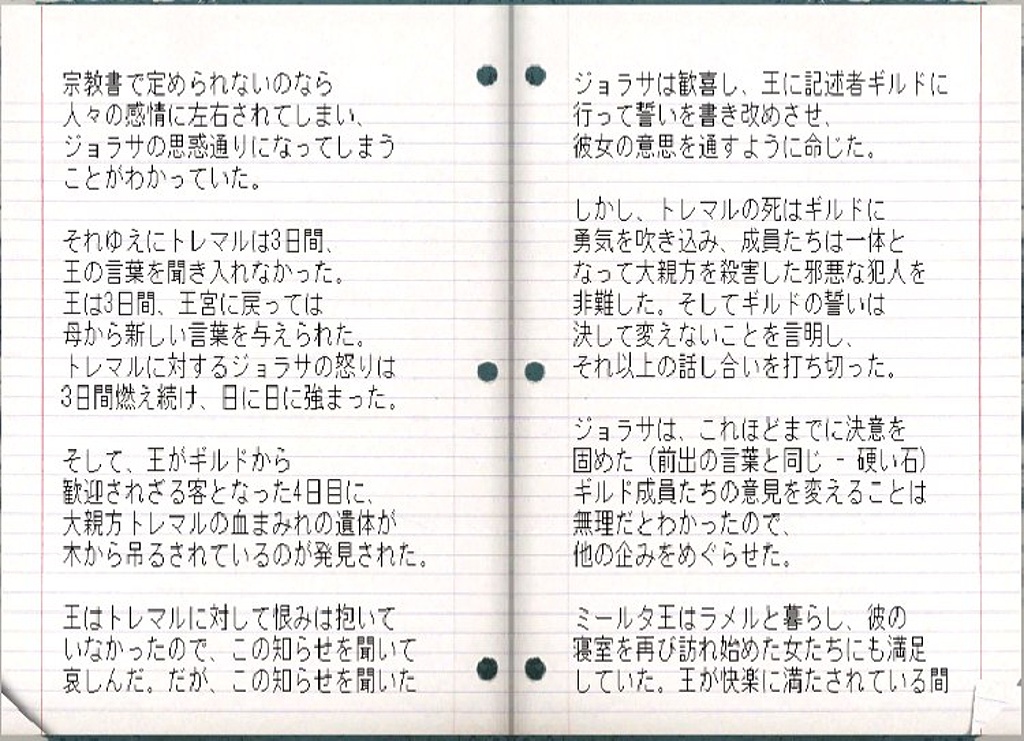 宗教書で定められないのなら
人々の感情に左右されてしまい、
ジョラサの思惑通りになってしまう
ことがわかっていた。
それゆえにトレマルは3日間、
王の言葉を聞き入れなかった。
王は3日間、王宮に戻っては
母から新しい言葉を与えられた。
トレマルに対するジョラサの怒りは
3日間燃え続け、日に日に強まった。
そして、王がギルドから
歓迎されざる客となった4日目に、
大親方トレマルの血まみれの遺体が
木から吊るされているのが発見された。
王はトレマルに対して恨みは抱いて
いなかったので、この知らせを聞いて
哀しんだ。だが、この知らせを聞いた
ジョラサは歓喜し、王に記述者ギルドに
行って誓いを書き改めさせ、
彼女の意思を通すように命じた。
しかし、トレマルの死はギルドに
勇気を吹き込み、成員たちは一体と
なって大親方を殺害した邪悪な犯人を
非難した。そしてギルドの誓いは
決して変えないことを言明し、
それ以上の話し合いを打ち切った。
ジョラサは、これほどまでに決意を
固めた（前出の言葉と同じ - 硬い石）
ギルド成員たちの意見を変えることは
無理だとわかったので、
他の企みをめぐらせた。
ミールタ王はラメルと暮らし、彼の
寝室を再び訪れ始めた女たちにも満足
していた。王が快楽に満たされている間